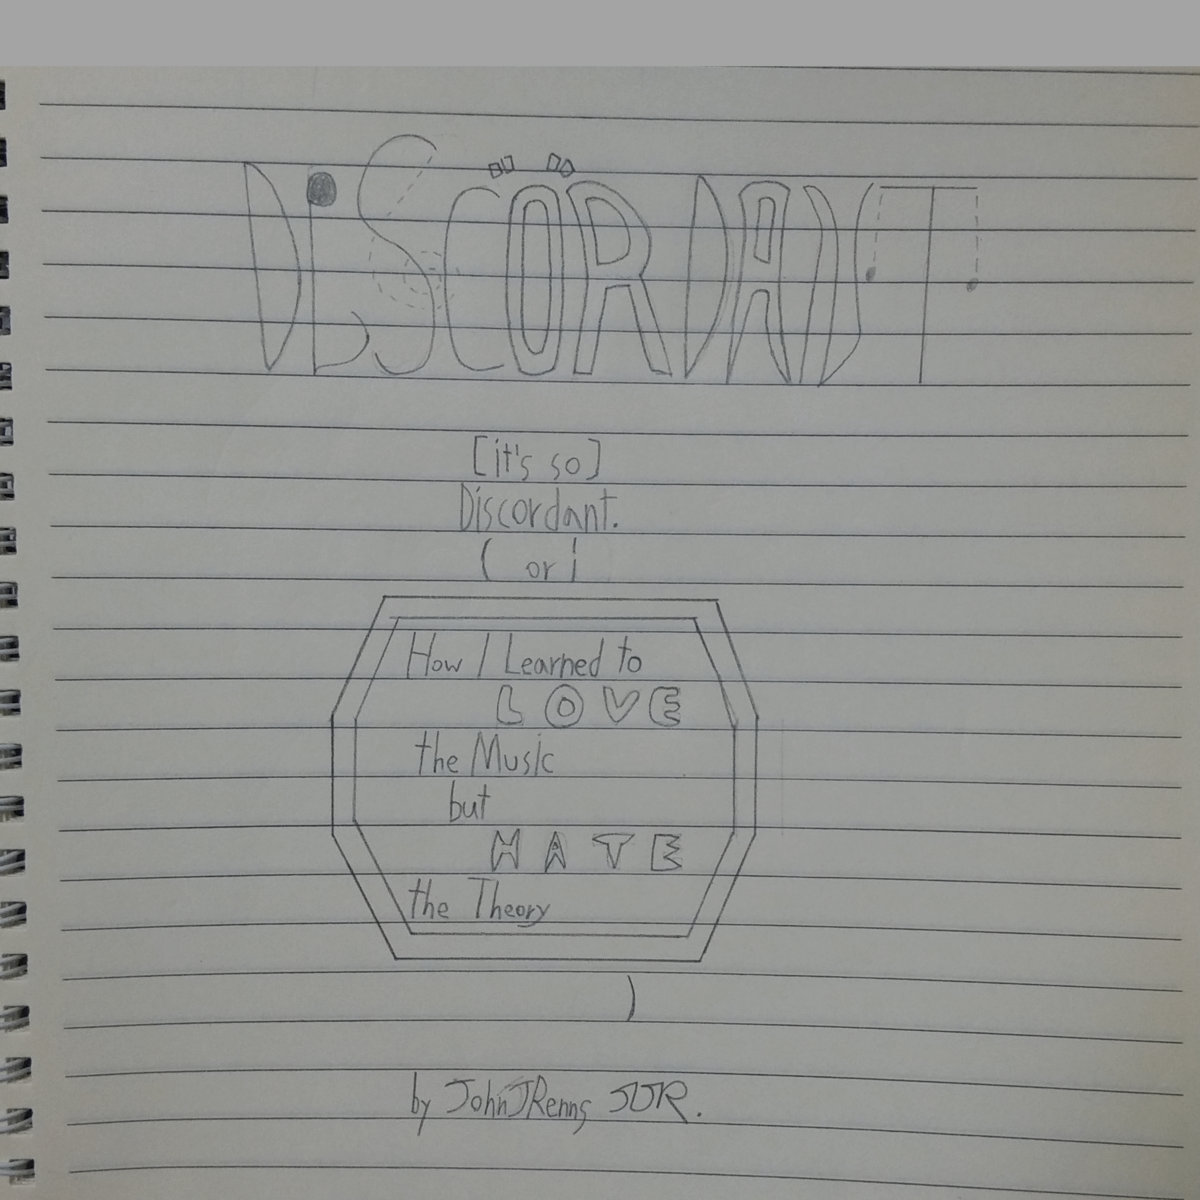 DISCÖRDANT
[it's so]
Discordant.
( or
How I Learned to
LOVE
the Music
but
HATE
the Theory
)
by JohnJRenns JJR.